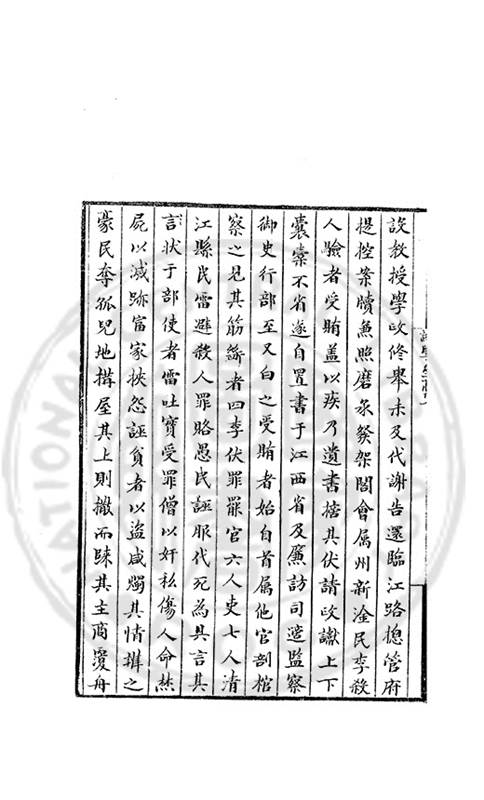 設教授學政修舉未及代謝告還臨江路總管府
提控案牘兼照磨承發架閣會属州新淦民李殺
人驗者受賄盖以疾乃遺書揞其伏請改讞上下
囊槖不省遂自置書于江西省及廉訪司適監察
御史行部至又白之受賄者始自首属他官剖棺
察之見其筋絲者四李伏罪罷官六人吏七人清
江縣民雷避殺人罪賂愚民誣服代死為具言其
言状于部使者雷吐實受罪僧以奸私傷人命焚
屍以滅跡富家挾怨誣負者以盗咸燭其情辨之
豪民奪孤兒地搆屋其上則撤而歸其主商覆舟